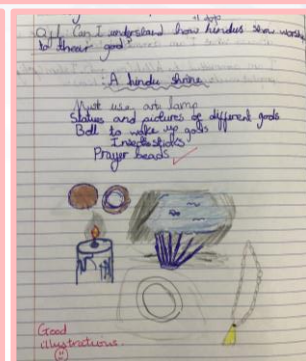 Q1. Can I understand how hindus show worship
to their god?
A hindu shrine
Must use arti lamp
Statues and pictures of different gods
Bell to wake up gods
Prayer beads
Good
illustrations.